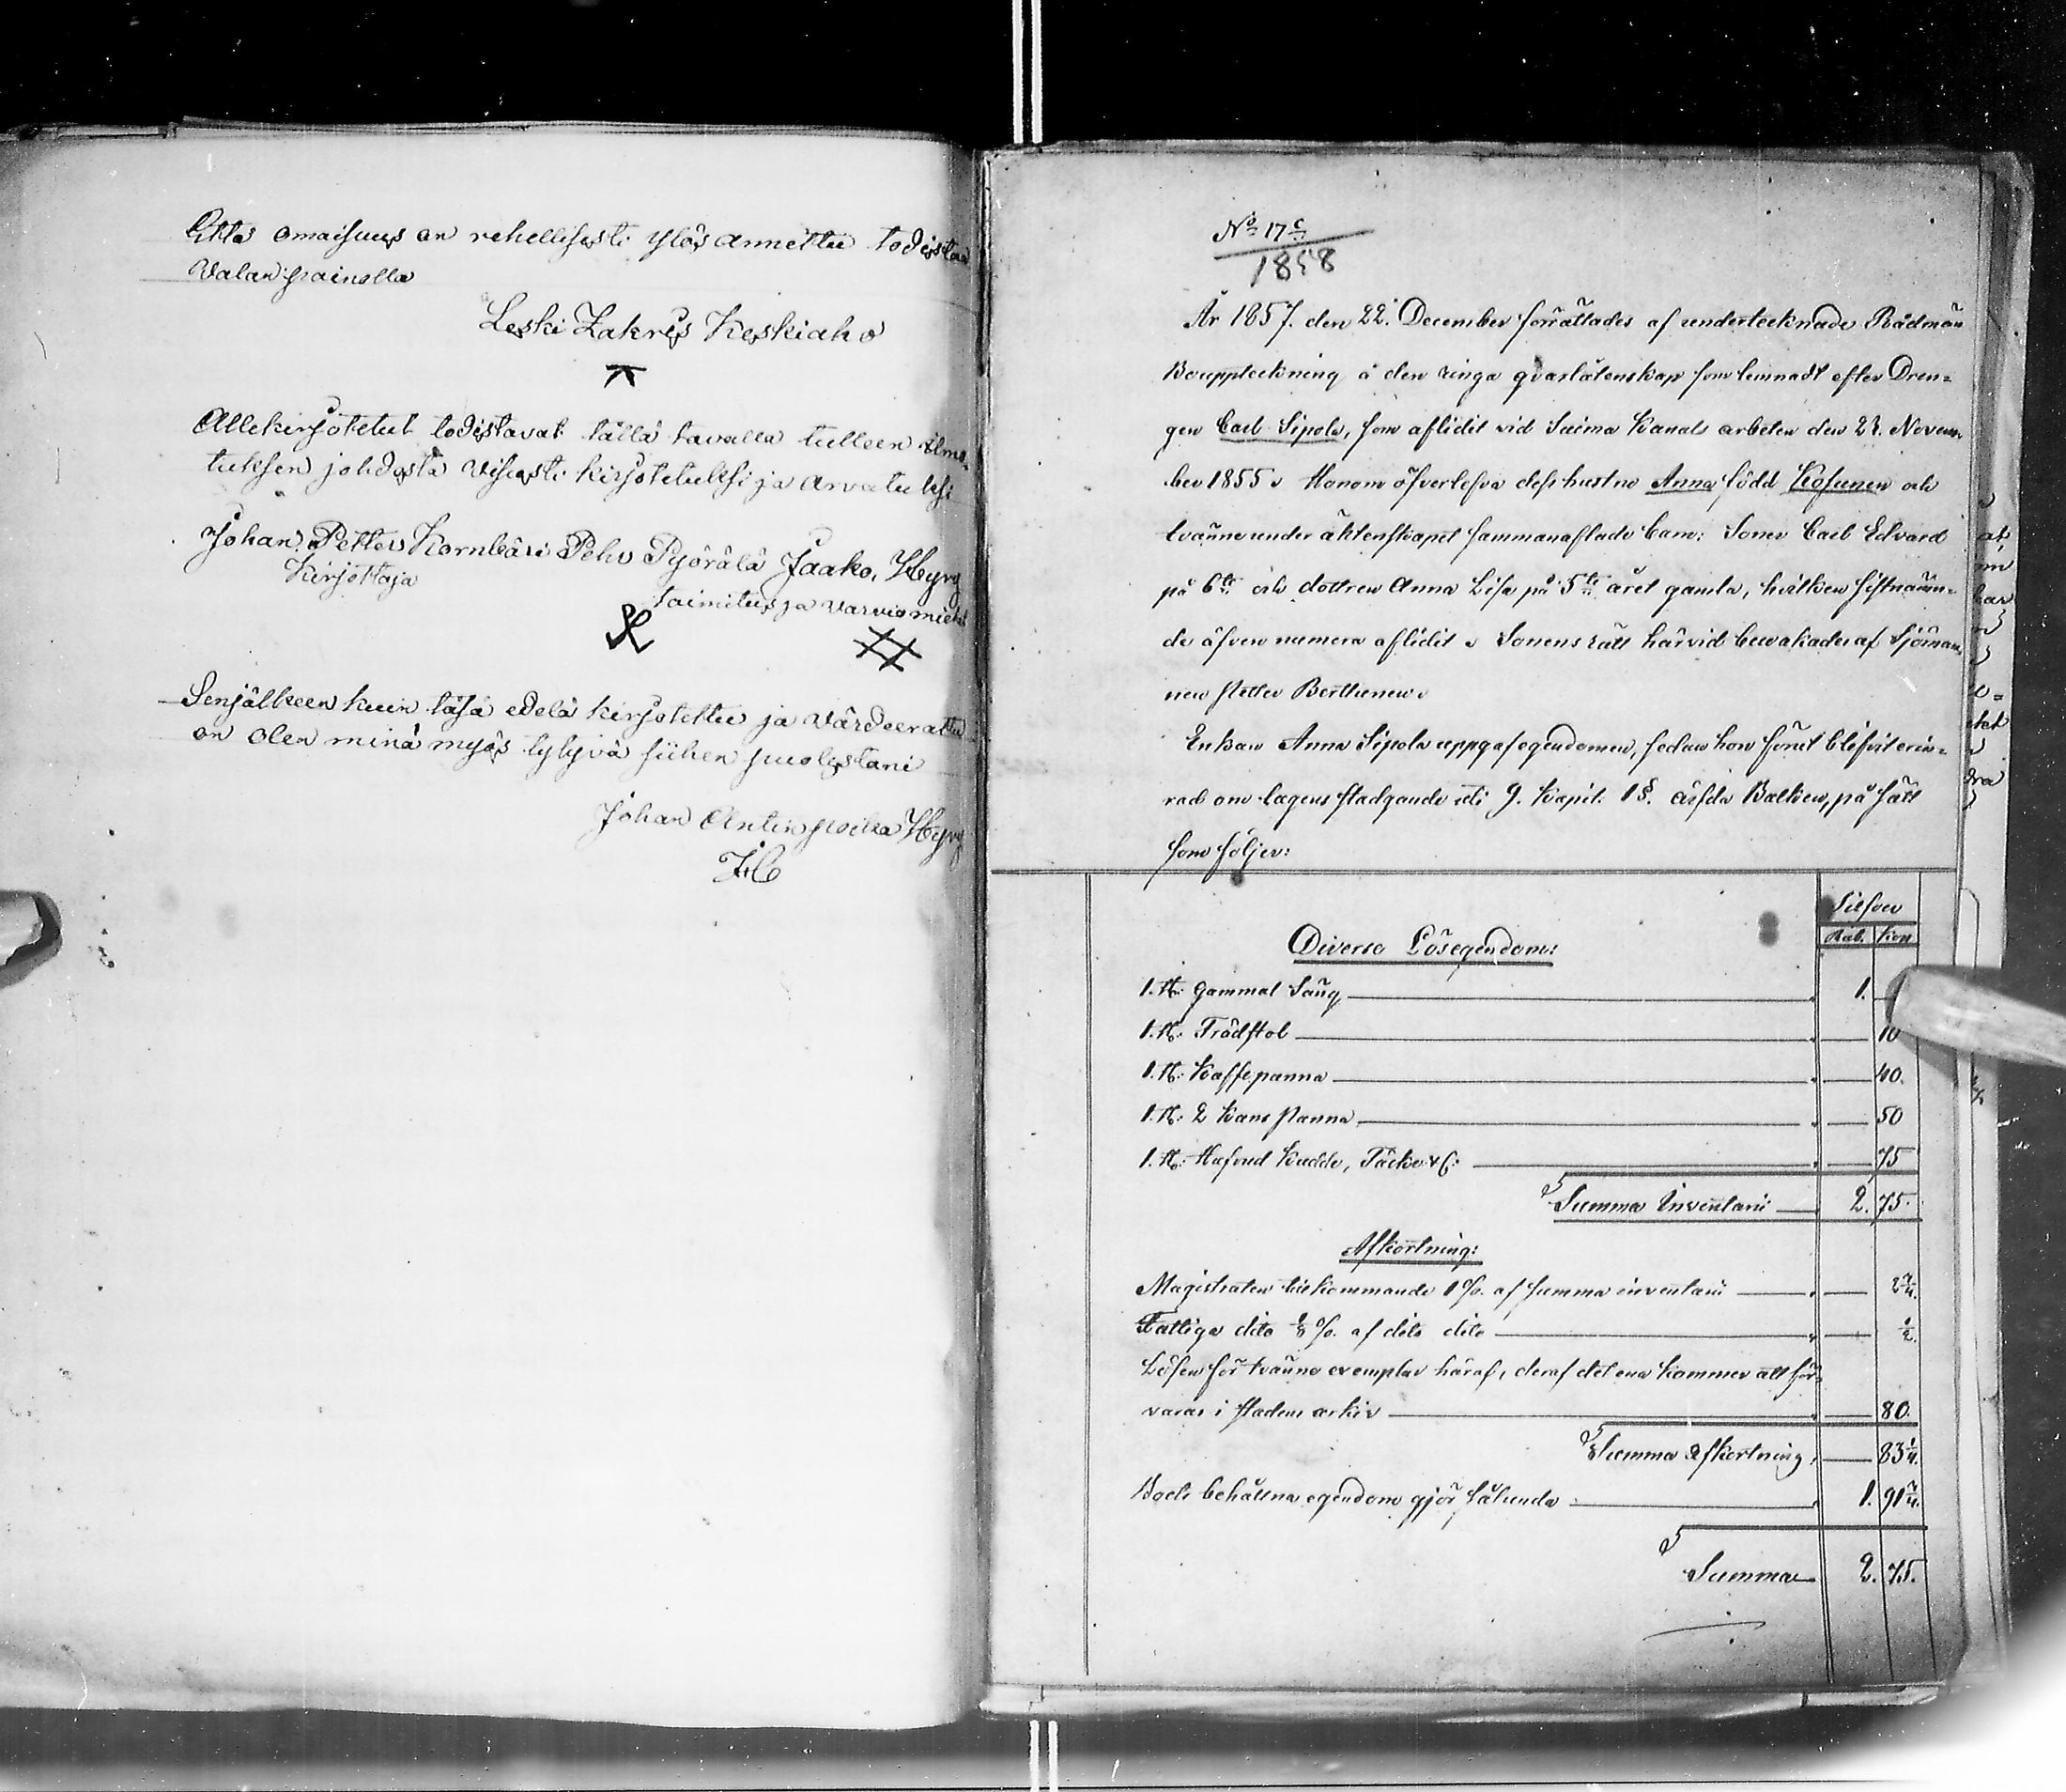 Että omaisuus on rehellisesti ylös annettu todistaa
Valan painolla
Leski Zakris Keskiaho
Allekirjotetut todistavat tällä tavalla tulleen ilmo-
tuksen johdosta visusti kirjotetuksi ja arvatuksi
Johan Petter Kornbäri Pehr Pyörälä Jaako Hyry
Kirjottaja
toimitus ja varviomiehet
Senjälkeen kuin täsä edelä kirjotettu ja värdeerattu
on olen minä myös tytyvä siihen puolestani
Johan Antinpoika Hyry
JH
No 17 c
1858
År 1857. den 22. December förrättades af undertecknade Rådmän
Bouppteckning å den ringa qvarlåtenskap som lemnadt efter Dren-
gen Carl Sipola, som aflidit vid Saima Kanals arbeten den 23. Novem-
ber 1855. Honom öfverlefva dess hustru Anna född Kosunen och
tvänne under äktenskapet sammanaflade barn: Sonen Carl Edvard
på 6te och dottren Anna Lisa på 5te året gamla, hvilken sistnämn-
de äfven numera aflidit. Sonens rätt härvid bevakades af Sjöman-
nen Petter Berttunen.
Enkan Anna Sipola uppgaf egendomen, sedan hon förut blifvit erin-
rad om lagens stadgande uti 9. Kapit. 1 §. ärfda Balken, på sätt
som följer:
Silfver
Rub. Kop
Diverse Lösegendom:
1. St: gammal Säng 1. —
1. St: Trädstol — 10
1. St: Kaffepanna — 40.
1. St: 2 Kans Panna — 50
1. St: Hufvud Kudde, Täcke &c: — 75
Summa Inventarii 2. 75.
Afkortning:
Magistraten tillkommande 1 %. af summa inventarii — 2 3/4.
Fattige dito 1/8 %. af dito dito — 1/2.
Lösen för tvänne exemplar häraf, deraf det ena kommer att för-
varas i stadens arkiv — 80.
Summa afkortning — 83 1/4.
Boets behållna egendom gjör sålunda 1. 91 3/4.
Summa 2. 75.